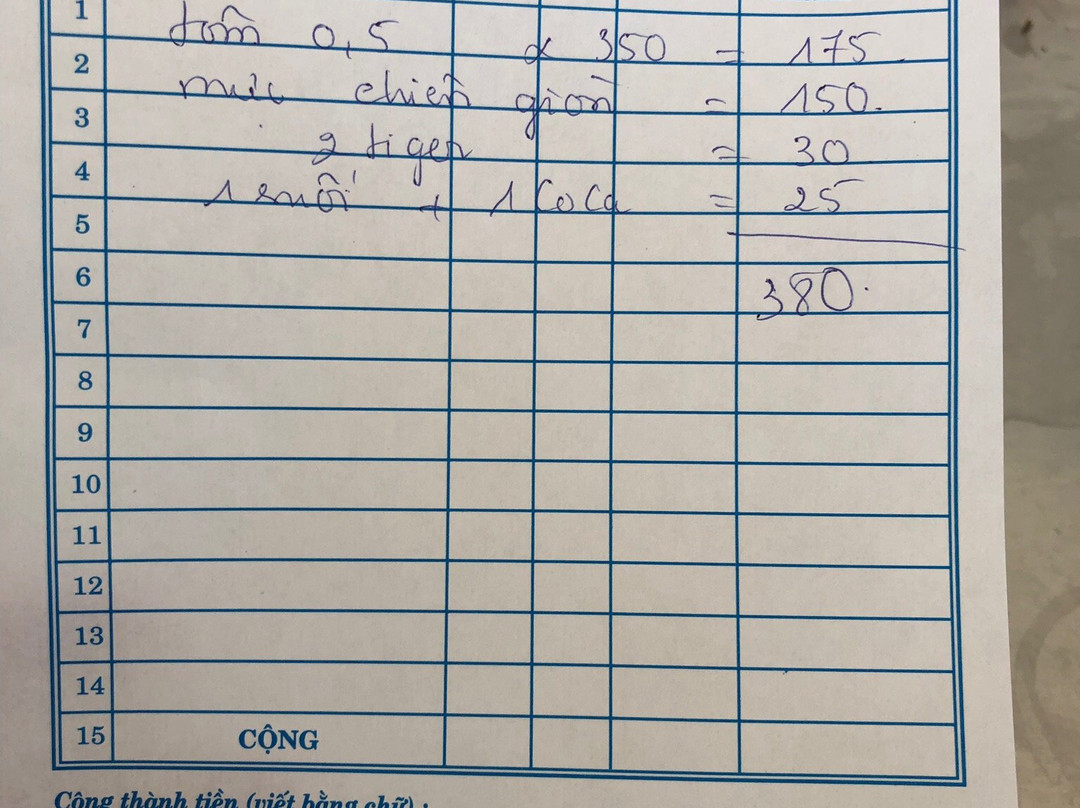 1
tôm 0,5 x 350 = 175
2
mực chiên giòn = 150.
3
2 tiger = 30
4
1 suối + 1 CoCa = 25
5
6
380.
7
8
9
10
11
12
13
14
15 CỘNG
Cộng thành tiền (viết bằng chữ) :